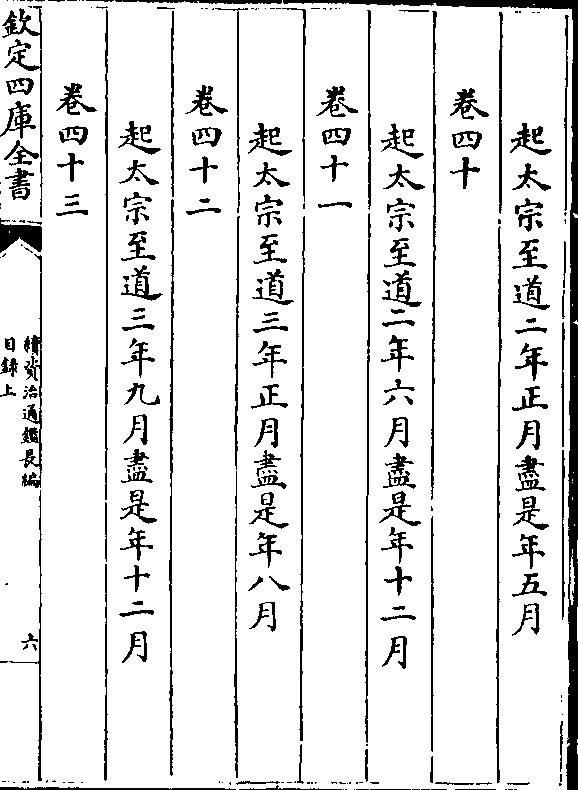 起太宗至道二年正月盡是年五月
卷四十
起太宗至道二年六月盡是年十二月
卷四十一
起太宗至道三年正月盡是年八月
卷四十二
起太宗至道三年九月盡是年十二月
卷四十三
欽定四庫全書
續資治通鑑長編
目録上
六